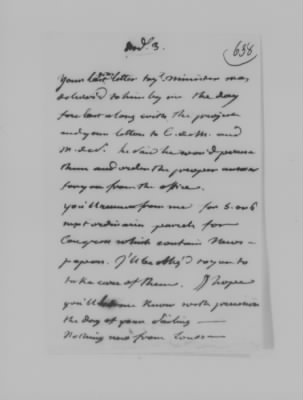 Wed. 3.
658
Your last letter to ye. minister was
delivered to him by me the day
before last along with the project
and your letters to C. de M. and
M. de V. he said he wou'd peruse
them and order the proper answer
for you from the office.
You'll receive from me for 5. or 6
most ordinaire parcels for
Congress which contain News-
papers. I'll be oblig'd to you to
take care of them. I hope
you'll let me know with precision
the day of your Sailing —
Nothing new from